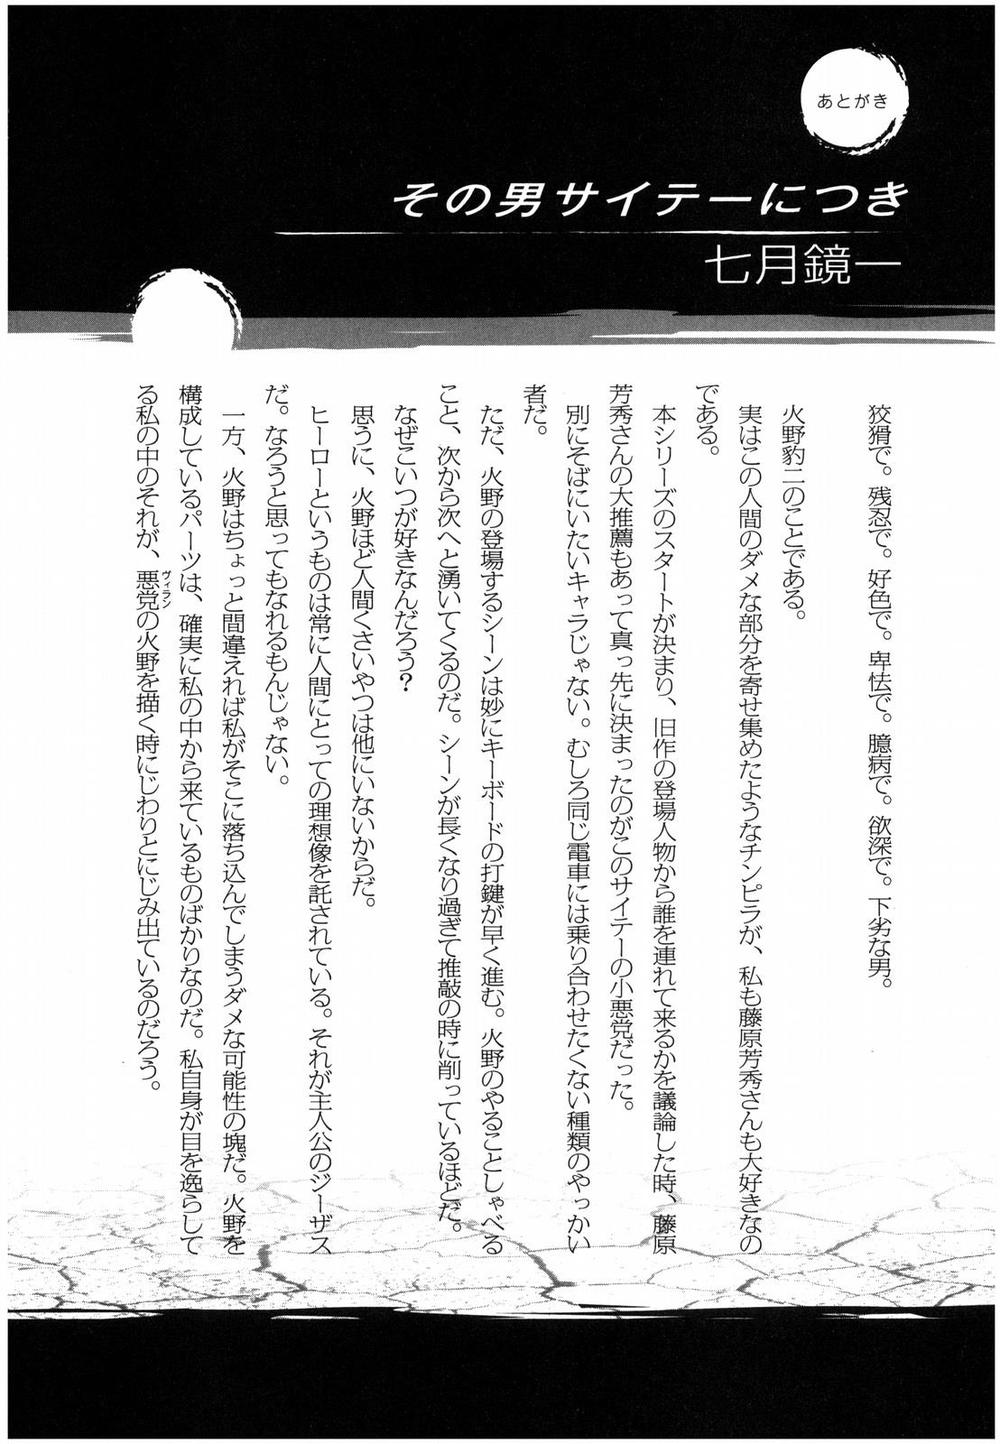 あとがき
その男サイテーにつき
七月鏡一
狡猾で。残忍で。好色で。卑怯で。臆病で。欲深で。下劣な男。
火野豹二のことである。
実はこの人間のダメな部分を寄せ集めたようなチンピラが、私も藤原芳秀さんも大好きなの
である。
本シリーズのスタートが決まり、旧作の登場人物から誰を連れて来るかを議論した時、藤原
芳秀さんの大推薦もあって真っ先に決まったのがこのサイテーの小悪党だった。
別にそばにいたいキャラじゃない。むしろ同じ電車には乗り合わせたくない種類のやっかい
者だ。
ただ、火野の登場するシーンは妙にキーボードの打鍵が早く進む。火野のやることしゃべる
こと、次から次へと湧いてくるのだ。シーンが長くなり過ぎて推敲の時に削っているほどだ。
なぜこいつが好きなんだろう？
思うに、火野ほど人間くさいやつは他にいないからだ。
ヒーローというものは常に人間にとっての理想像を託されている。それが主人公のジーザス
だ。なろうと思ってもなれるもんじゃない。
一方、火野はちょっと間違えれば私がそこに落ち込んでしまうダメな可能性の塊だ。火野を
構成しているパーツは、確実に私の中から来ているものばかりなのだ。私自身が目を逸らして
る私の中のそれが、悪党の火野を描く時にじわりとにじみ出ているのだろう。
ヴィラン